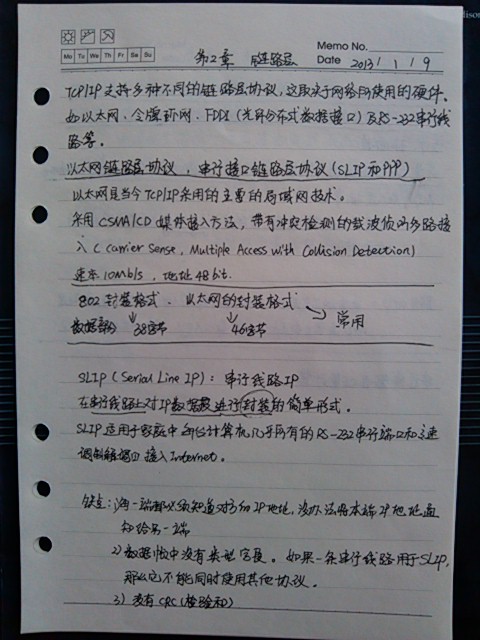 Memo No.
Mo Tu We Th Fr Sa Su
第2章 链路层
Date 2013/1/9
TCP/IP支持多种不同的链路层协议,这取决于网络所使用的硬件。
如以太网、令牌环网、FDDI(光纤分布式数据接口)及RS-232串行线
路等。
以太网链路层协议,串行接口链路层协议(SLIP和PPP)
以太网是当今TCP/IP采用的主要的局域网技术。
采用CSMA/CD媒体接入方法,带有冲突检测的载波侦听多路接
入(Carrier Sense, Multiple Access with Collision Detection)
速率10Mb/s,地址48bit.
802封装格式、以太网的封装格式
数据部分 38字节 46字节 常用
SLIP(Serial Line IP):串行线路IP
在串行线路上对IP数据报进行封装的简单形式。
SLIP适用于家庭中每台计算机几乎所有的RS-232串行端口和高速
调制解调器接入Internet。
缺点:1)每一端都必须知道对方的IP地址,没办法将本端IP地址通
知给另一端
2)数据帧中没有类型字段。如果一条串行线路用于SLIP,
那么它不能同时使用其他协议。
3)没有CRC(检验和)